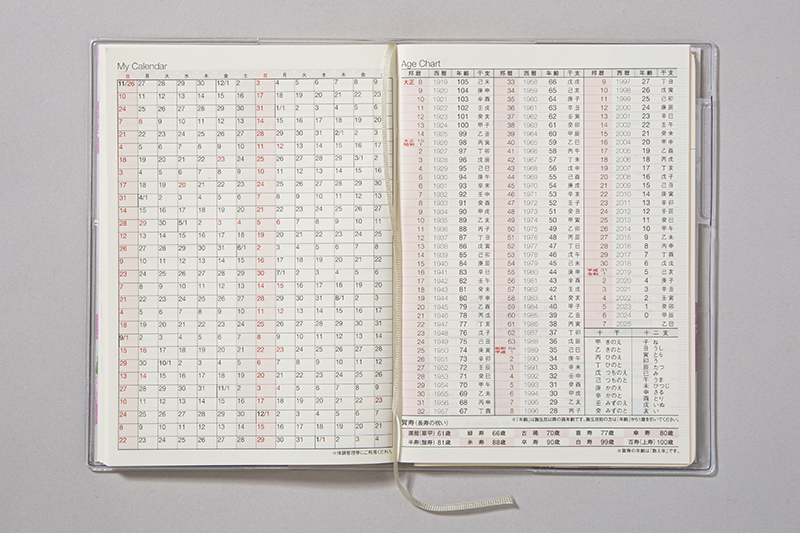 My Calendar
日 月 火 水 木 金 土 日 月 火 水 木 金 土
11/26 27 28 29 30 12/1 2 3 4 5 6 7 8 9
10 11 12 13 14 15 16 17 18 19 20 21 22 23
24 25 26 27 28 29 30 31 1/1 2 3 4 5 6
7 8 9 10 11 12 13 14 15 16 17 18 19 20
21 22 23 24 25 26 27 28 29 30 31 2/1 2 3
4 5 6 7 8 9 10 11 12 13 14 15 16 17
18 19 20 21 22 23 24 25 26 27 28 29 3/1 2
3 4 5 6 7 8 9 10 11 12 13 14 15 16
17 18 19 20 21 22 23 24 25 26 27 28 29 30
31 4/1 2 3 4 5 6 7 8 9 10 11 12 13
14 15 16 17 18 19 20 21 22 23 24 25 26 27
28 29 30 5/1 2 3 4 5 6 7 8 9 10 11
12 13 14 15 16 17 18 19 20 21 22 23 24 25
26 27 28 29 30 31 6/1 2 3 4 5 6 7 8
9 10 11 12 13 14 15 16 17 18 19 20 21 22
23 24 25 26 27 28 29 30 7/1 2 3 4 5 6
7 8 9 10 11 12 13 14 15 16 17 18 19 20
21 22 23 24 25 26 27 28 29 30 31 8/1 2 3
4 5 6 7 8 9 10 11 12 13 14 15 16 17
18 19 20 21 22 23 24 25 26 27 28 29 30 31
9/1 2 3 4 5 6 7 8 9 10 11 12 13 14
15 16 17 18 19 20 21 22 23 24 25 26 27 28
29 30 10/1 2 3 4 5 6 7 8 9 10 11 12
13 14 15 16 17 18 19 20 21 22 23 24 25 26
27 28 29 30 31 11/1 2 3 4 5 6 7 8 9
10 11 12 13 14 15 16 17 18 19 20 21 22 23
24 25 26 27 28 29 30 12/1 2 3 4 5 6 7
8 9 10 11 12 13 14 15 16 17 18 19 20 21
22 23 24 25 26 27 28 29 30 31 1/1 2 3 4
※体調管理等にご利用くださ
Age Chart
邦暦 西暦 年齢 干支 邦暦 西暦 年齢 干支 邦暦 西暦 年齢 干支
大正 8 1919 105 己未 33 1958 66 戊戌 9 1997 27 丁丑
9 1920 104 庚申 34 1959 65 己亥 10 1998 26 戊寅
10 1921 103 辛酉 35 1960 64 庚子 11 1999 25 己卯
11 1922 102 壬戌 36 1961 63 辛丑 12 2000 24 庚辰
12 1923 101 癸亥 37 1962 62 壬寅 13 2001 23 辛巳
13 1924 100 甲子 38 1963 61 癸卯 14 2002 22 壬午
14 1925 99 乙丑 39 1964 60 甲辰 15 2003 21 癸未
大正 15 昭和 1 1926 98 丙寅 40 1965 59 乙巳 16 2004 20 甲申
2 1927 97 丁卯 41 1966 58 丙午 17 2005 19 乙酉
3 1928 96 戊辰 42 1967 57 丁未 18 2006 18 丙戌
4 1929 95 己巳 43 1968 56 戊申 19 2007 17 丁亥
5 1930 94 庚午 44 1969 55 己酉 20 2008 16 戊子
6 1931 93 辛未 45 1970 54 庚戌 21 2009 15 己丑
7 1932 92 壬申 46 1971 53 辛亥 22 2010 14 庚寅
8 1933 91 癸酉 47 1972 52 壬子 23 2011 13 辛卯
9 1934 90 甲戌 48 1973 51 癸丑 24 2012 12 壬辰
10 1935 89 乙亥 49 1974 50 甲寅 25 2013 11 癸巳
11 1936 88 丙子 50 1975 49 乙卯 26 2014 10 甲午
12 1937 87 丁丑 51 1976 48 丙辰 27 2015 9 乙未
13 1938 86 戊寅 52 1977 47 丁巳 28 2016 8 丙申
14 1939 85 己卯 53 1978 46 戊午 29 2017 7 丁酉
15 1940 84 庚辰 54 1979 45 己未 30 2018 6 戊戌
16 1941 83 辛巳 55 1980 44 庚申 平成 31 令和 1 2019 5 己亥
17 1942 82 壬午 56 1981 43 辛酉 2 2020 4 庚子
18 1943 81 癸未 57 1982 42 壬戌 3 2021 3 辛丑
19 1944 80 甲申 58 1983 41 癸亥 4 2022 2 壬寅
20 1945 79 乙酉 59 1984 40 甲子 5 2023 1 癸卯
21 1946 78 丙戌 60 1985 39 乙丑 6 2024 0 甲辰
22 1947 77 丁亥 61 1986 38 丙寅 7 2025 乙巳
23 1948 76 戊子 62 1987 37 丁卯
24 1949 75 己丑 63 1988 36 戊辰
25 1950 74 庚寅 昭和 64 平成 1 1989 35 己巳
26 1951 73 辛卯 2 1990 34 庚午
27 1952 72 壬辰 3 1991 33 辛未
28 1953 71 癸巳 4 1992 32 壬申
29 1954 70 甲午 5 1993 31 癸酉
30 1955 69 乙未 6 1994 30 甲戌
31 1956 68 丙申 7 1995 29 乙亥
32 1957 67 丁酉 8 1996 28 丙子
十干 十二支
甲 きのえ 子 ね
乙 きのと 丑 うし
丙 ひのえ 寅 とら
丁 ひのと 卯 う
戊 つちのえ 辰 たつ
己 つちのと 巳 み
庚 かのえ 午 うま
辛 かのと 未 ひつじ
壬 みずのえ 申 さる
癸 みずのと 酉 とり
戌 いぬ
亥 い
※「年齢」は誕生日以降の満年齢です。誕生日前の方は「年齢」から1歳を引いてください。
賀寿(長寿の祝い)
還暦(華甲) 61歳 緑寿 66歳 古稀 70歳 喜寿 77歳 傘寿 80歳
半寿(盤寿) 81歳 米寿 88歳 卒寿 90歳 白寿 99歳 百寿(上寿) 100歳
※賀寿の年齢は「数え年」です。